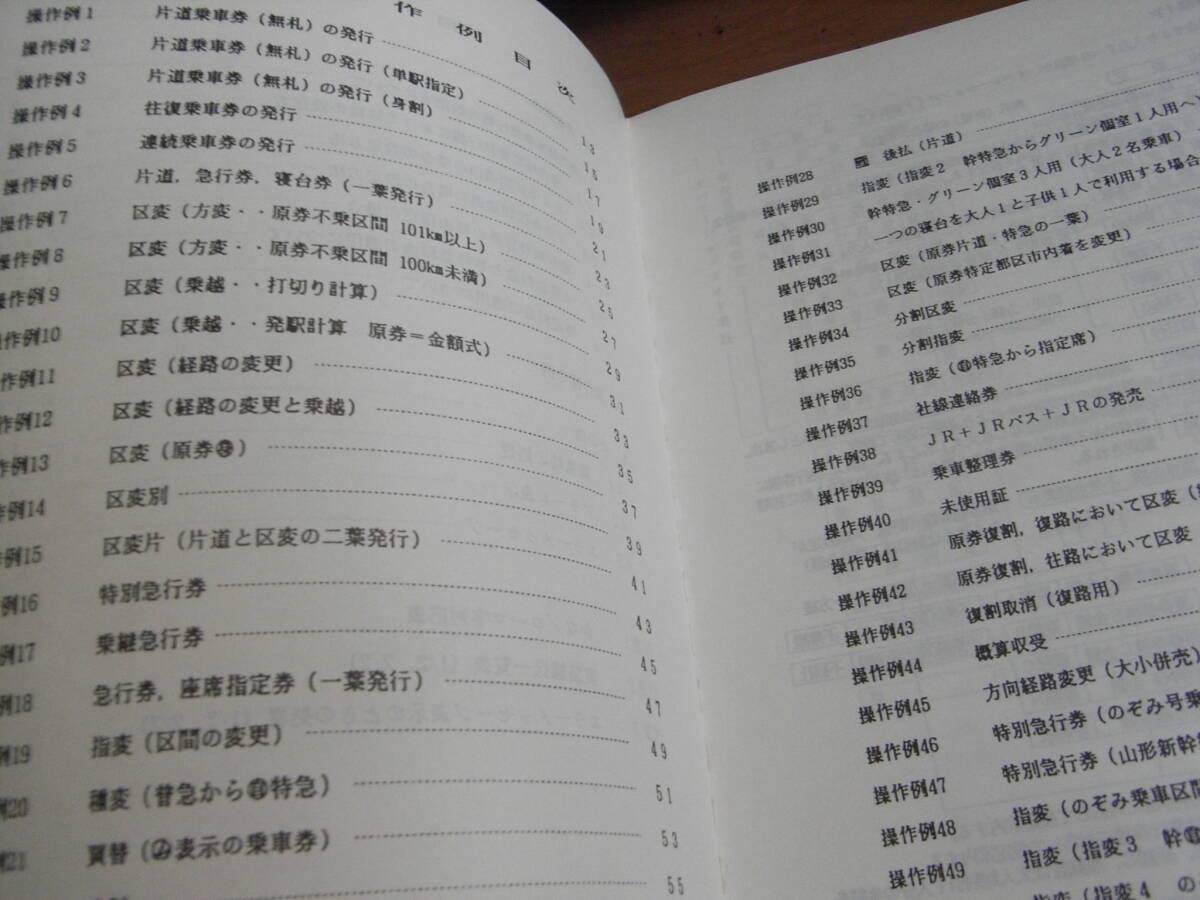 作例目次
操作例1 片道乗車券（無札）の発行 13
操作例2 片道乗車券（無札）の発行（単駅指定） 15
操作例3 片道乗車券（無札）の発行（身割） 17
操作例4 往復乗車券の発行 19
操作例5 連続乗車券の発行 21
操作例6 片道，急行券，寝台券（一葉発行） 23
操作例7 区変（方変・・原券不乗区間 101㎞以上） 25
操作例8 区変（方変・・原券不乗区間 100㎞未満） 27
操作例9 区変（乗越・・打切り計算） 29
操作例10 区変（乗越・・発駅計算 原券＝金額式） 31
作例11 区変（経路の変更） 33
作例12 区変（経路の変更と乗越） 35
作例13 区変（原券 ） 37
作例14 区変別 39
作例15 区変片（片道と区変の二葉発行） 41
例16 特別急行券 43
例17 乗継急行券 45
例18 急行券，座席指定券（一葉発行） 47
例19 指変（区間の変更） 49
例20 種変（普急から㊐特急） 51
例21 買替（ 表示の乗車券） 53
55
操作例28 後払（片道）
操作例29 指変（指変2 幹特急からグリーン個室1人用へ）
操作例30 幹特急・グリーン個室3人用（大人2名乗車）
操作例31 一つの寝台を大人1と子供1人で利用する場合
操作例32 区変（原券片道・特急の一葉）
操作例33 区変（原券特定都区市内着を変更）
操作例34 分割区変
操作例35 分割指変
操作例36 指変（ 特急から指定席）
操作例37 社線連絡券
操作例38 JR＋JRバス＋JRの発売
操作例39 乗車整理券
操作例40 未使用証
操作例41 原券復割，復路において区変（
操作例42 原券復割，往路において区変
操作例43 復割取消（復路用）
操作例44 概算収受
操作例45 方向経路変更（大小併売）
操作例46 特別急行券（のぞみ号乗
操作例47 特別急行券（山形新幹
操作例48 指変（のぞみ乗車区間
操作例49 指変（指変3 幹
指変（指変4 の